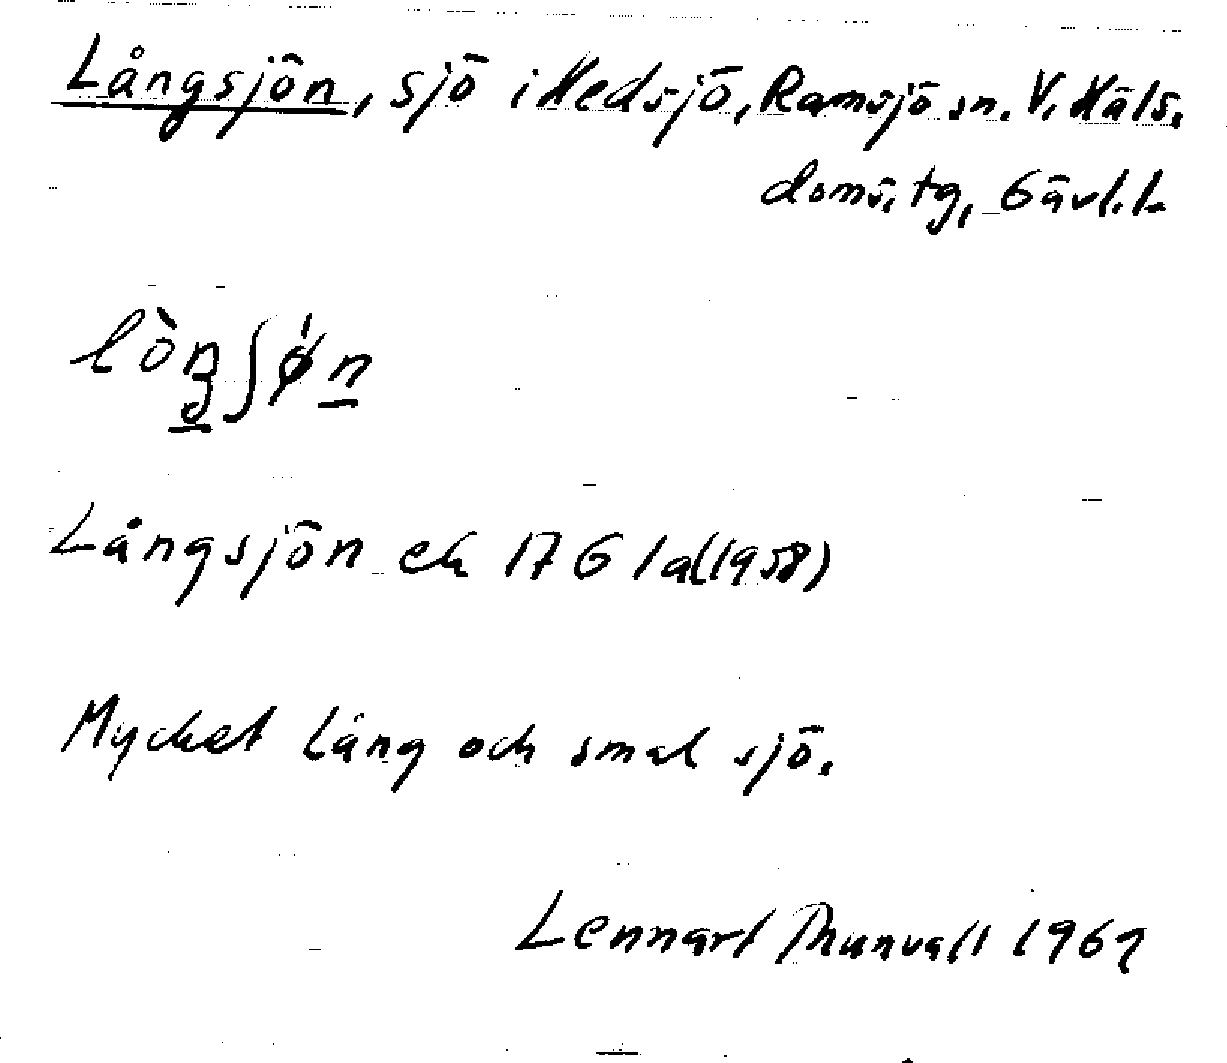 Långsjön, sjö i Hedsjö, Ramsjö sn. V. Häls.
doms. tg, Gävl.l.
lòŋʃø̍n
Långsjön ek 17G 1a(1958)
Mycket lång och smal sjö.
Lennart Thunvall 1962